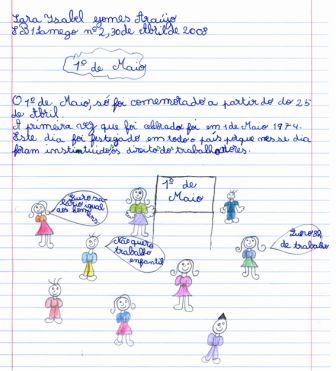 Sara Ysabel Gomes Araújo
EB1 Lamego nº2, 30 de Abril de 2008
1º de Maio
O 1º de, Maio, só foi comemorado a partir do do 25
de Abril.
A primeira vez que foi celbrado foi em 1 de Maio 1974.
Este dia foi festegado em todo o país porque nesse dia
foram instituidos os direito do trabalhadores.
1º de
Maio
Quero sa-
lário igual
aos homens
Não quero
trabalho
infantil
Quero 8h
de trabalho